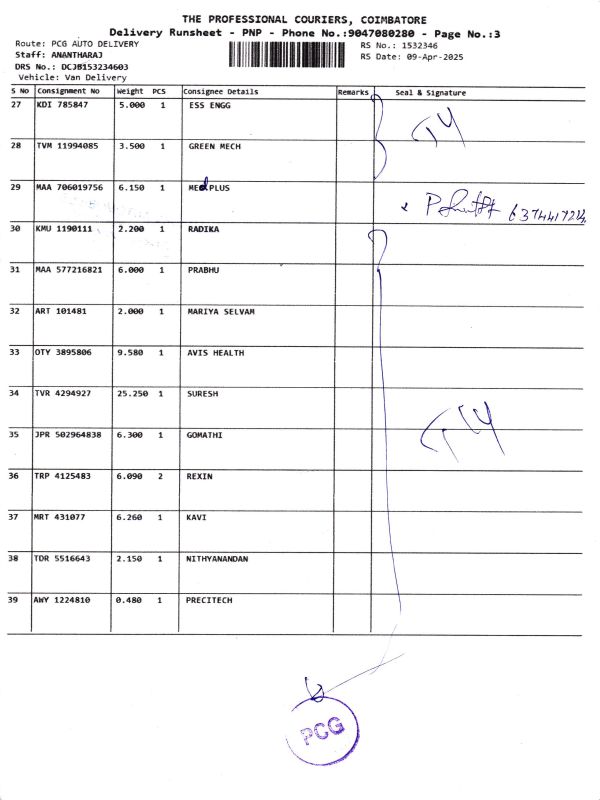 THE PROFESSIONAL COURIERS, COIMBATORE
Delivery Runsheet - PNP - Phone No.:9047080280 - Page No.:3
Route: PCG AUTO DELIVERY
RS No.: 1532346
Staff: ANANTHARAJ
RS Date: 09-Apr-2025
DRS No.: DCJB153234603
Vehicle: Van Delivery
S No Consignment No Weight PCS Consignee Details Remarks Seal & Signature
27 KDI 785847 5.000 1 ESS ENGG
28 TVM 11994085 3.500 1 GREEN MECH
29 MAA 706019756 6.150 1 MEdPLUS
30 KMU 1190111 2.200 1 RADIKA
31 MAA 577216821 6.000 1 PRABHU
32 ART 101481 2.000 1 MARIYA SELVAM
33 OTY 3895806 9.580 1 AVIS HEALTH
34 TVR 4294927 25.250 1 SURESH
35 JPR 502964838 6.300 1 GOMATHI
36 TRP 4125483 6.090 2 REXIN
37 MRT 431077 6.260 1 KAVI
38 TDR 5516643 2.150 1 NITHYANANDAN
39 AWY 1224810 0.480 1 PRECITECH
PCG